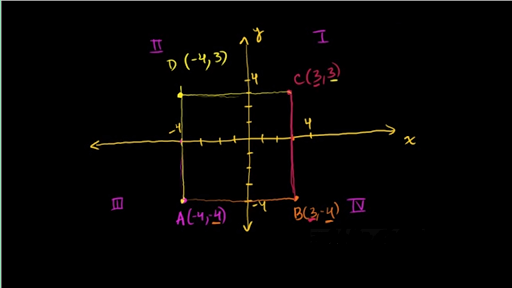 II
y
I
D (-4, 3)
4
C (3, 3)
-4
4
x
III
A (-4, -4)
-4
B (3, -4)
IV